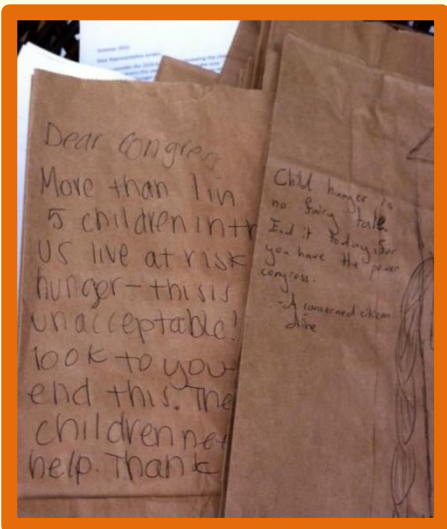 Dear Congres
More than 1 in
5 children in th
US live at risk
hunger - this is
unacceptable!
look to you
end this. The
children ne
help. Thank
Child hunger is
no fairy tale.
End it today, for
you have the power
congress.
-A concerned citizen